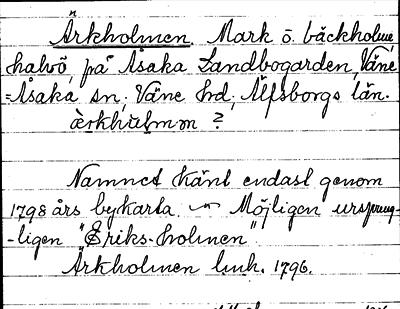 Ärkholmen. Mark o. bäckholme,
halvö, på Åsaka Landbogarden, Väne
=Åsaka sn; Väne hd; Älfsborgs län.
ærkhulmən ?
Namnet känt endast genom
1798 års bykarta. — Möjligen ursprung-
-ligen "Eriks-holmen".
Ärkholmen lmh. 1796.